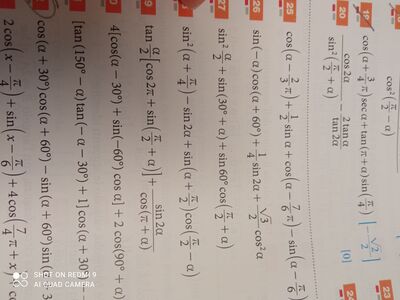 cos²(π/2 − α)
19 cos(α + 3/4 π) sec α + tan(π + α) sin(π/4) [−√2/2]
20 cos 2α / sin²(π/2 + α) − 2 tan α / tan 2α [0]
23
24
25 cos(α − 2/3 π) + 1/2 sin α + cos(α − 7/6 π) − sin(α − π/6)
26 sin(−α) cos(α + 60°) + 1/4 sin 2α + √3/2 cos² α
27 sin² α/2 + sin(30° + α) + sin 60° cos(π/2 + α)
sin²(α + π/4) − sin 2α + sin(α + π/2) cos(π/2 − α)
tan α/2 [cos 2π + sin(π/2 + α)] + sin 2α / cos(π + α)
4[cos(α − 30°) + sin(−60°) cos α] + 2 cos(90° + α)
[tan(150° − α) tan(−α − 30°) + 1] cos(α + 30°
cos(α + 30°) cos(α + 60°) − sin(α + 60°) sin
2 cos(x − π/4) + sin(x − π/6) + 4 cos(7/6 π + x
SHOT ON REDMI 9
AI QUAD CAMERA